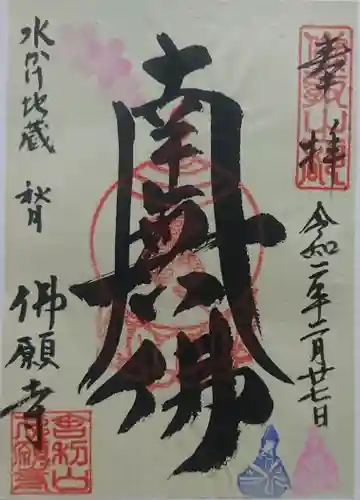 奉拝
令和二年二月廿七日
南無佛
水かけ地蔵
佛願寺